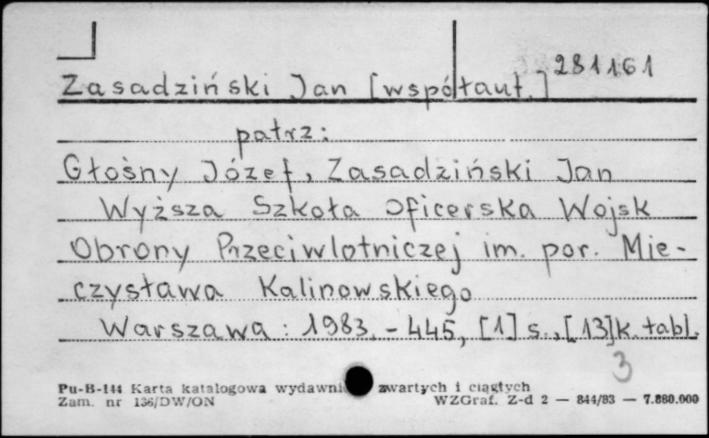 281161
Zasadziński Jan [współaut.]
patrz:
Głośny Józef, Zasadziński Jan
Wyższa Szkoła Oficerska Wojsk
Obrony Przeciwlotniczej im. por. Mie-
czysława Kalinowskiego
Warszawa: 1983. - 445, [1] s., [13] k. tabl.
3
Pu-B-144 Karta katalogowa wydawni zwartych i ciągłych
Zam. nr 136/DW/ON WZGraf. Z-d 2 — 844/83 — 7.880.000